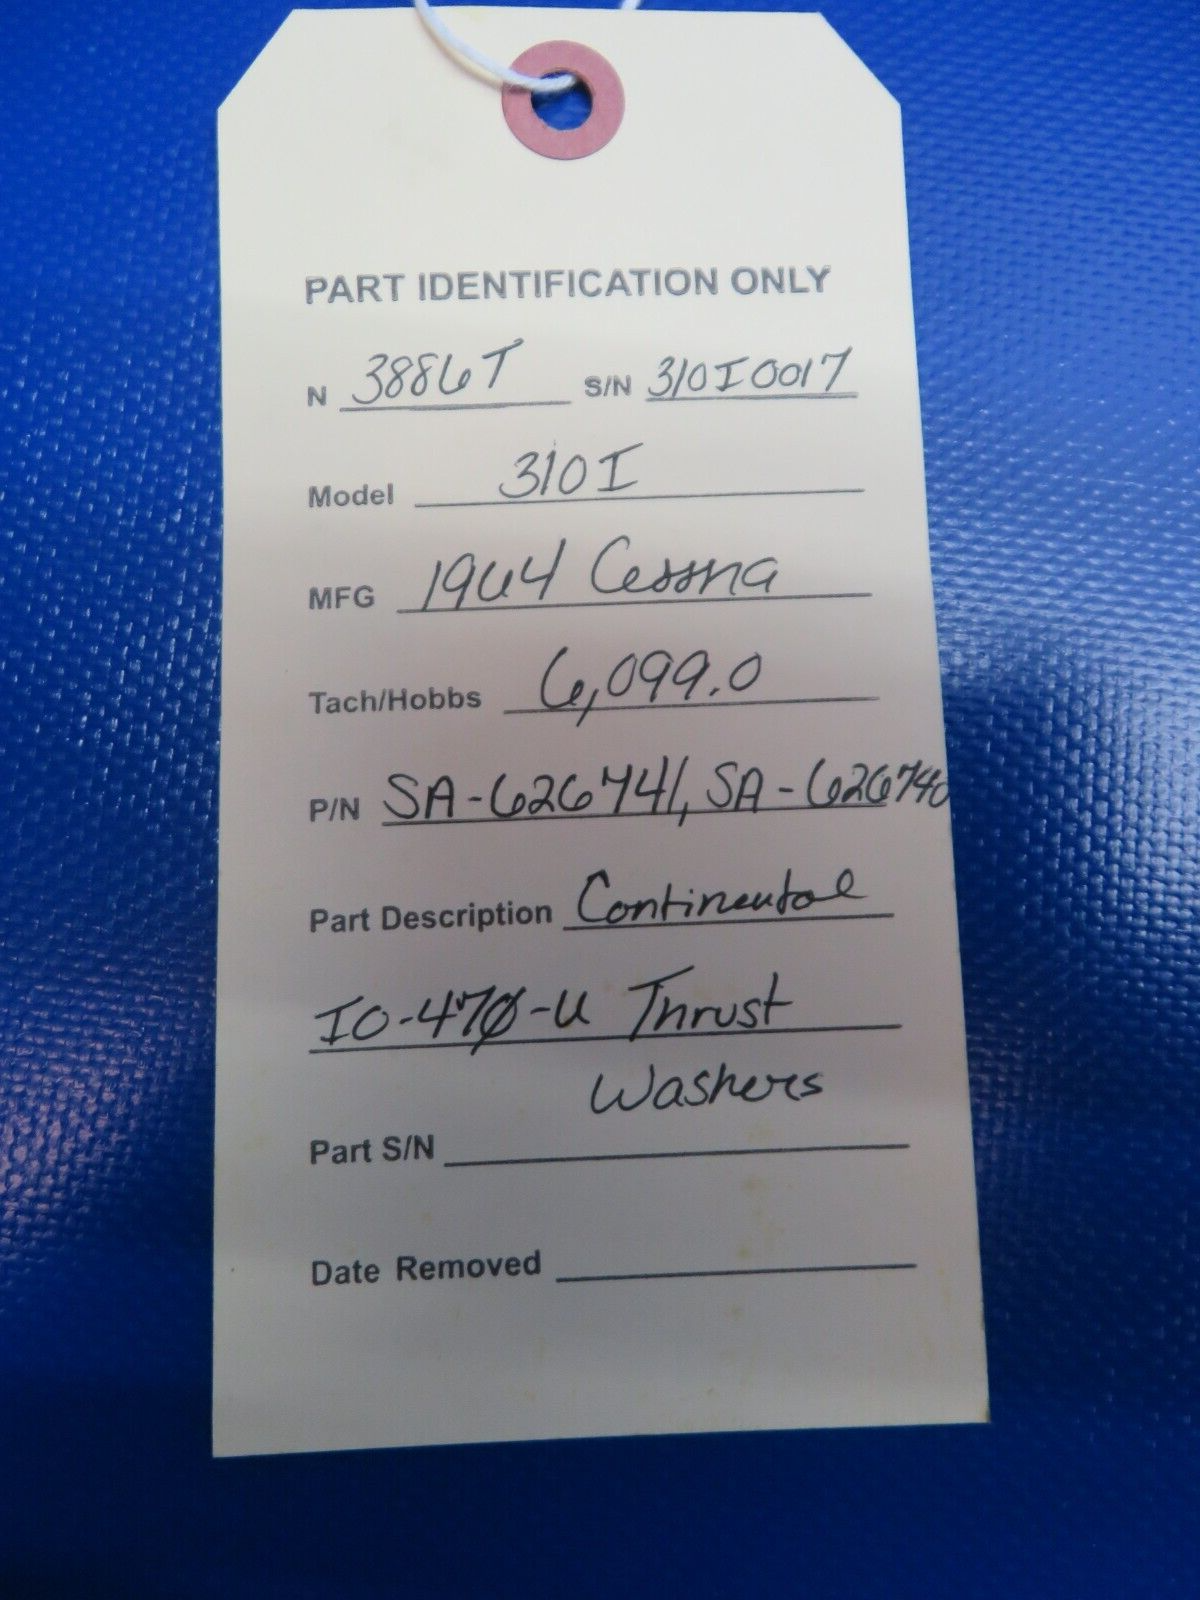 PART IDENTIFICATION ONLY
N 3886T S/N 310I0017
Model 310I
MFG 1964 Cessna
Tach/Hobbs 6,099.0
P/N SA-626741, SA-626740
Part Description Continental
IO-470-U Thrust
Washers
Part S/N
Date Removed